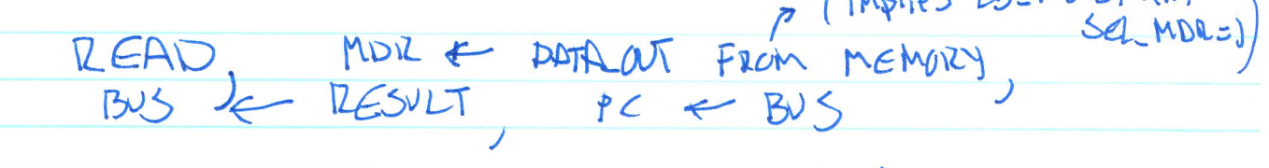 (Implies
Sel_MDR=1)
READ, MDR ← DATA_OUT FROM MEMORY,
BUS ← RESULT, PC ← BUS